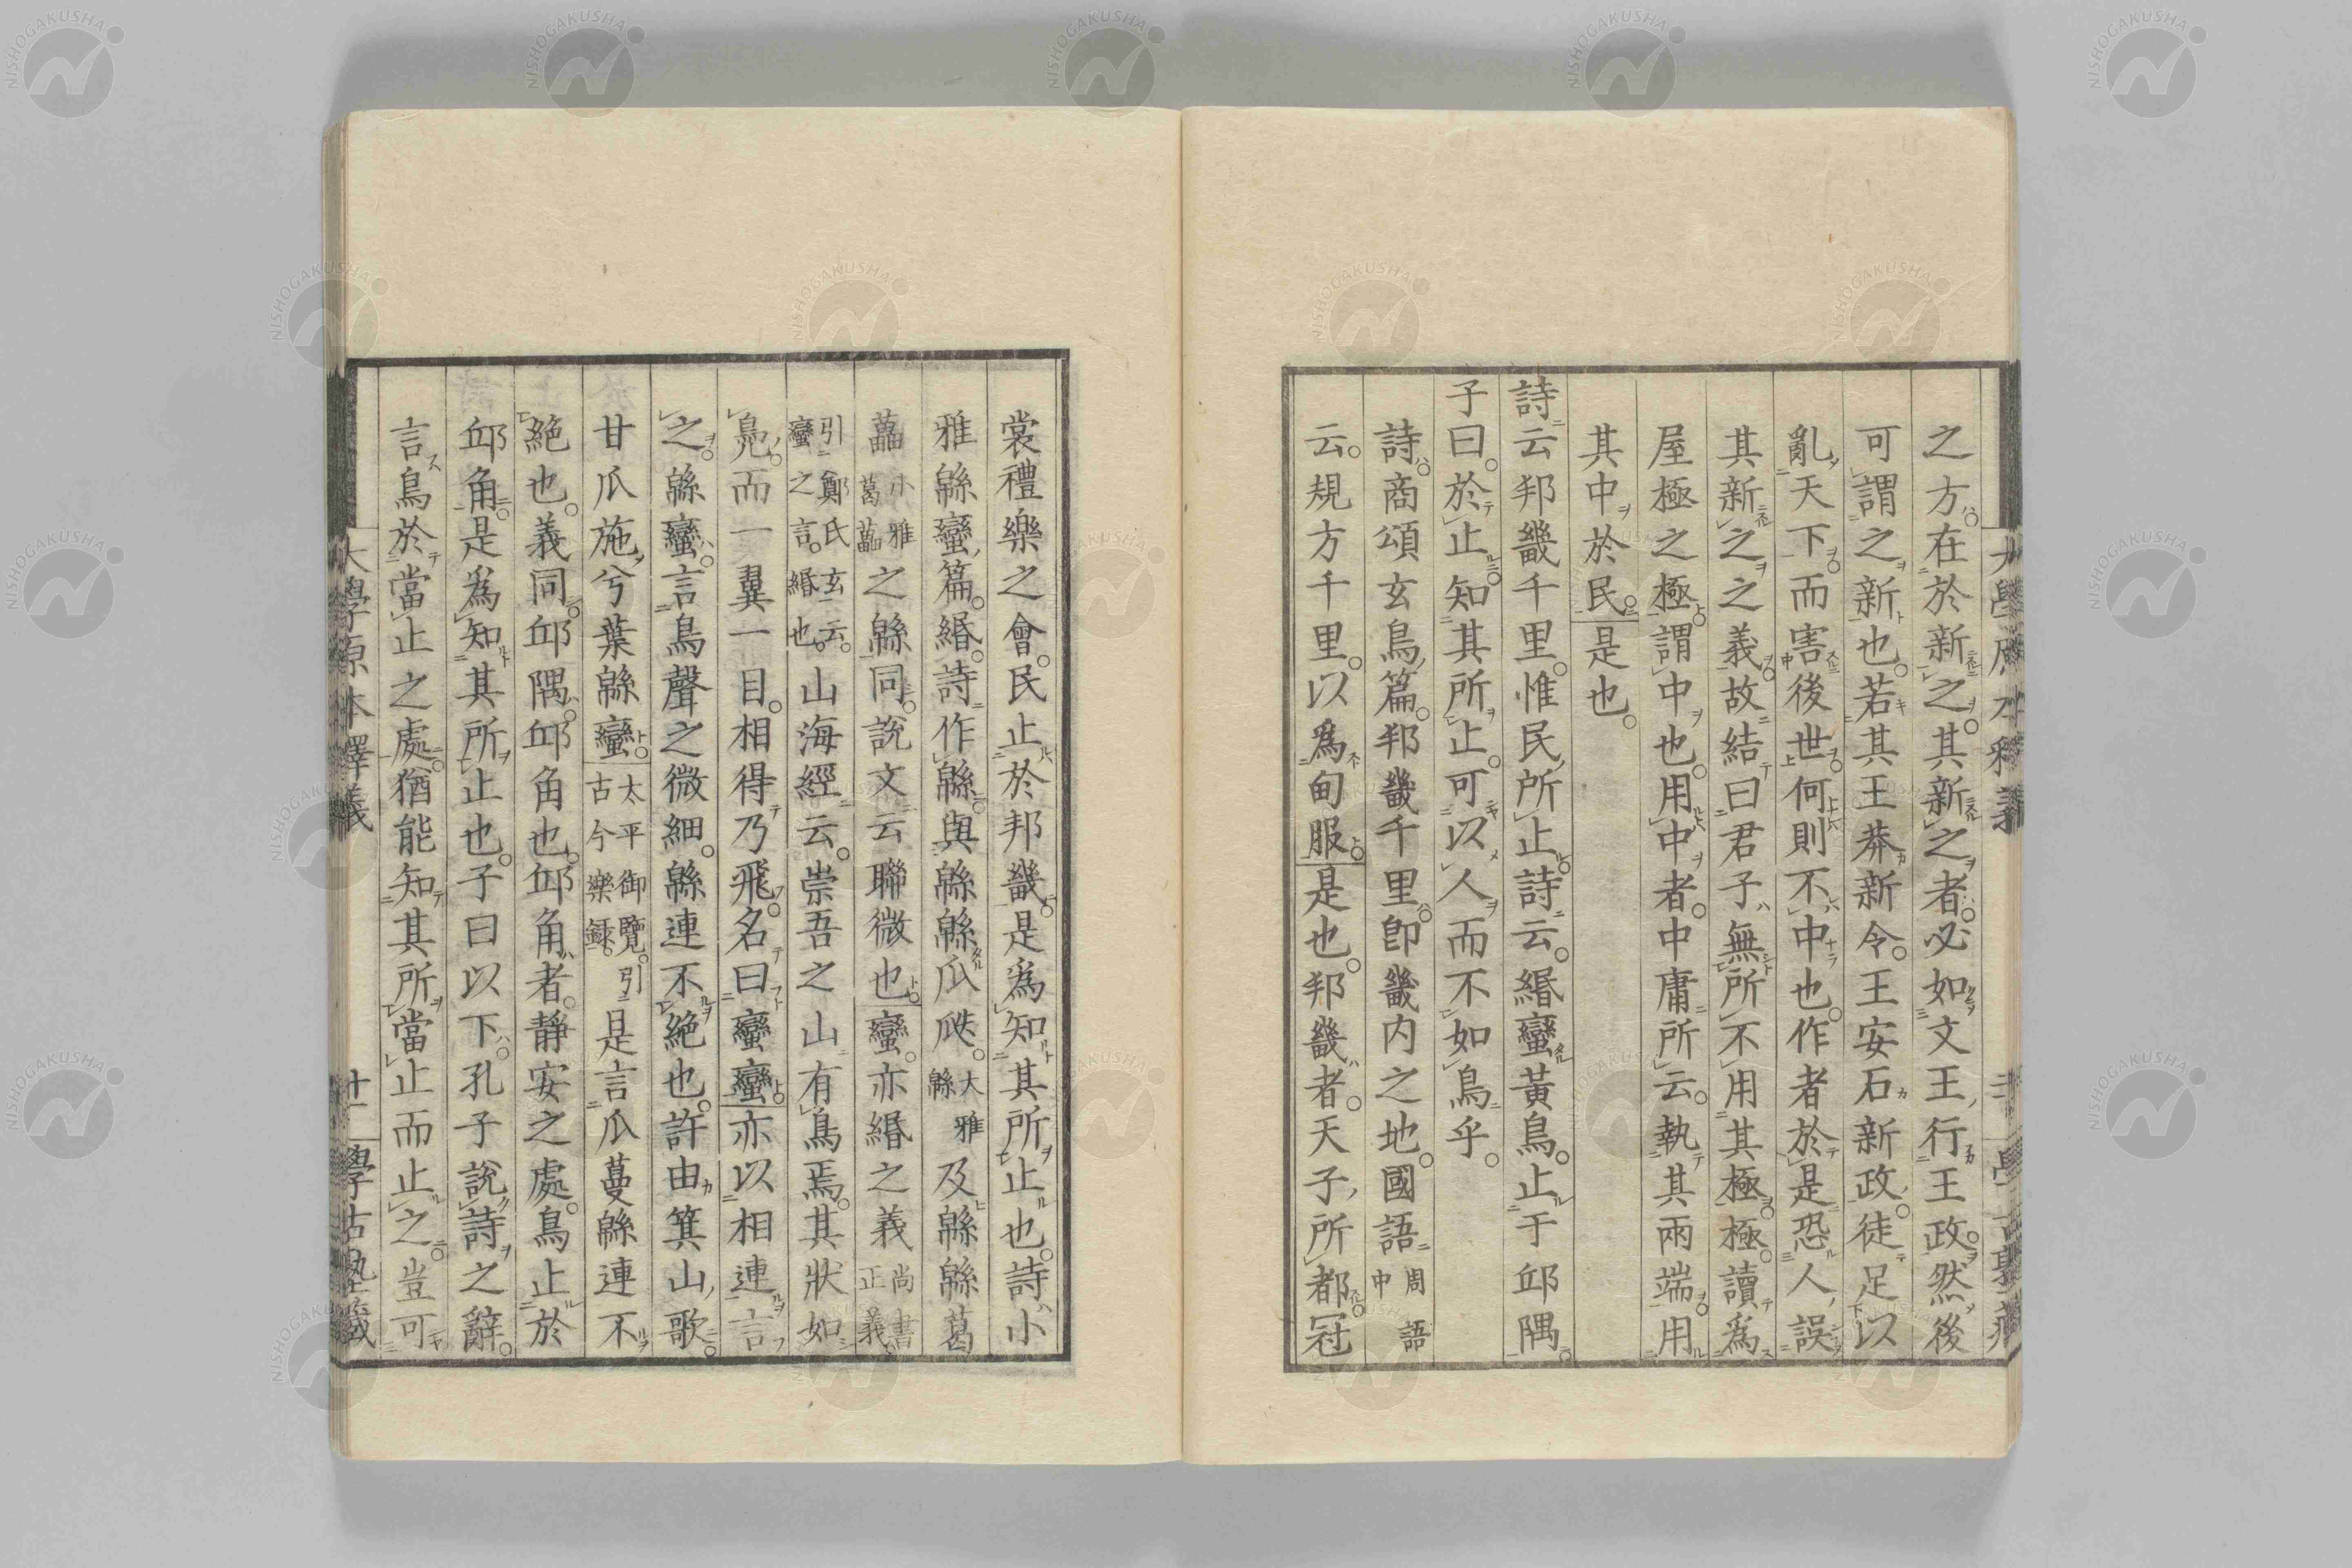 之方在於新之其新之者必如文王行王政然後
可謂之新也若其王莽新令王安石新政徒足以
亂天下而害後世何則不中也作者於是恐人誤
其新之之義故結曰君子無所不用其極極讀爲
屋極之極謂中也用中者中庸所云執其兩端用
其中於民是也
詩云邦畿千里惟民所止詩云緡蠻黃鳥止于邱隅
子曰於止知其所止可以人而不如鳥乎
詩商頌玄鳥篇邦畿千里卽畿内之地國語周語中
云規方千里以爲甸服是也邦畿者天子所都冠
裳禮樂之會民止於邦畿是爲知其所止也詩小
雅緜蠻篇緡詩作緜與緜緜瓜瓞大雅緜及緜緜葛
藟小雅葛藟之緜同說文云聯微也蠻亦緡之義尚書正義
引鄭氏玄云蠻之言緡也山海經云崇吾之山有鳥焉其狀如
鳧而一翼一目相得乃飛名曰蠻蠻亦以相連言
之緜蠻言鳥聲之微細緜連不絶也許由箕山歌
甘瓜施兮葉緜蠻太平御覽引古今樂錄是言瓜蔓緜連不
絶也義同邱隅邱角也邱角者靜安之處鳥止於
邱角是爲知其所止也子曰以下孔子說詩之辭
言鳥於當止之處猶能知其所當止而止之豈可
大學原本釋義
十一
學古塾藏
NISHOGAKUSHA